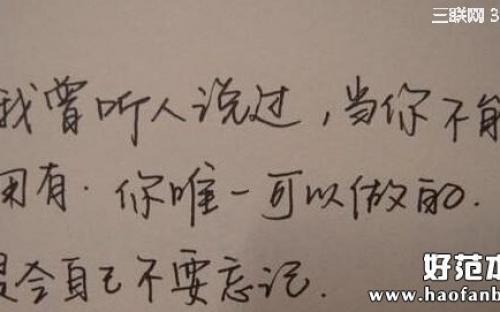 三联网 3
我曾听人说过，当你不能
拥有．你唯一可以做的．
是令自己不要忘记．
好范本
www.haofanb